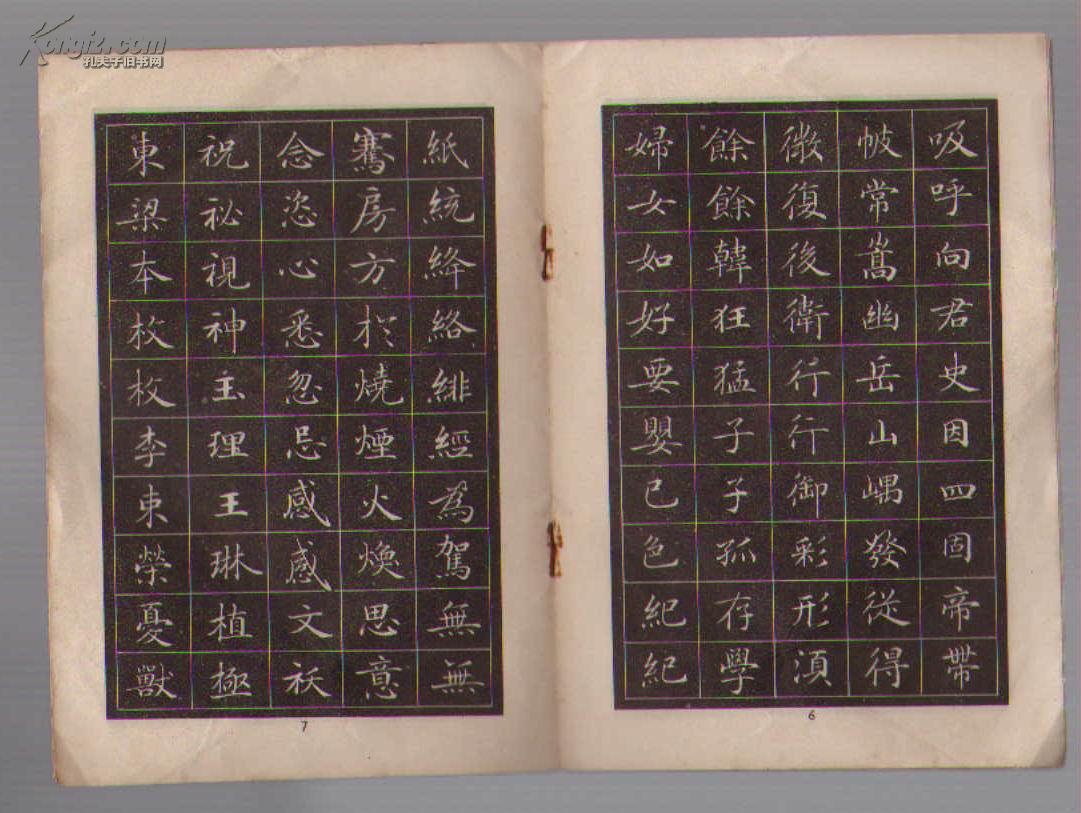 Kongfz.com
孔夫子旧书网
吸呼向君史因四固帝帶
帔常嵩幽岳山嵎發從得
徵復後衛行行御彩形須
餘餘韓狂猛子子孤存學
婦女如好要嬰已色紀紀
6
紙統絳絡緋經為駕無無
騫房方於燒煙火煥思意
念恣心悉忽忌感感文祆
祝祕視神主理王琳植極
東梁本枚枚李東榮憂獸
7